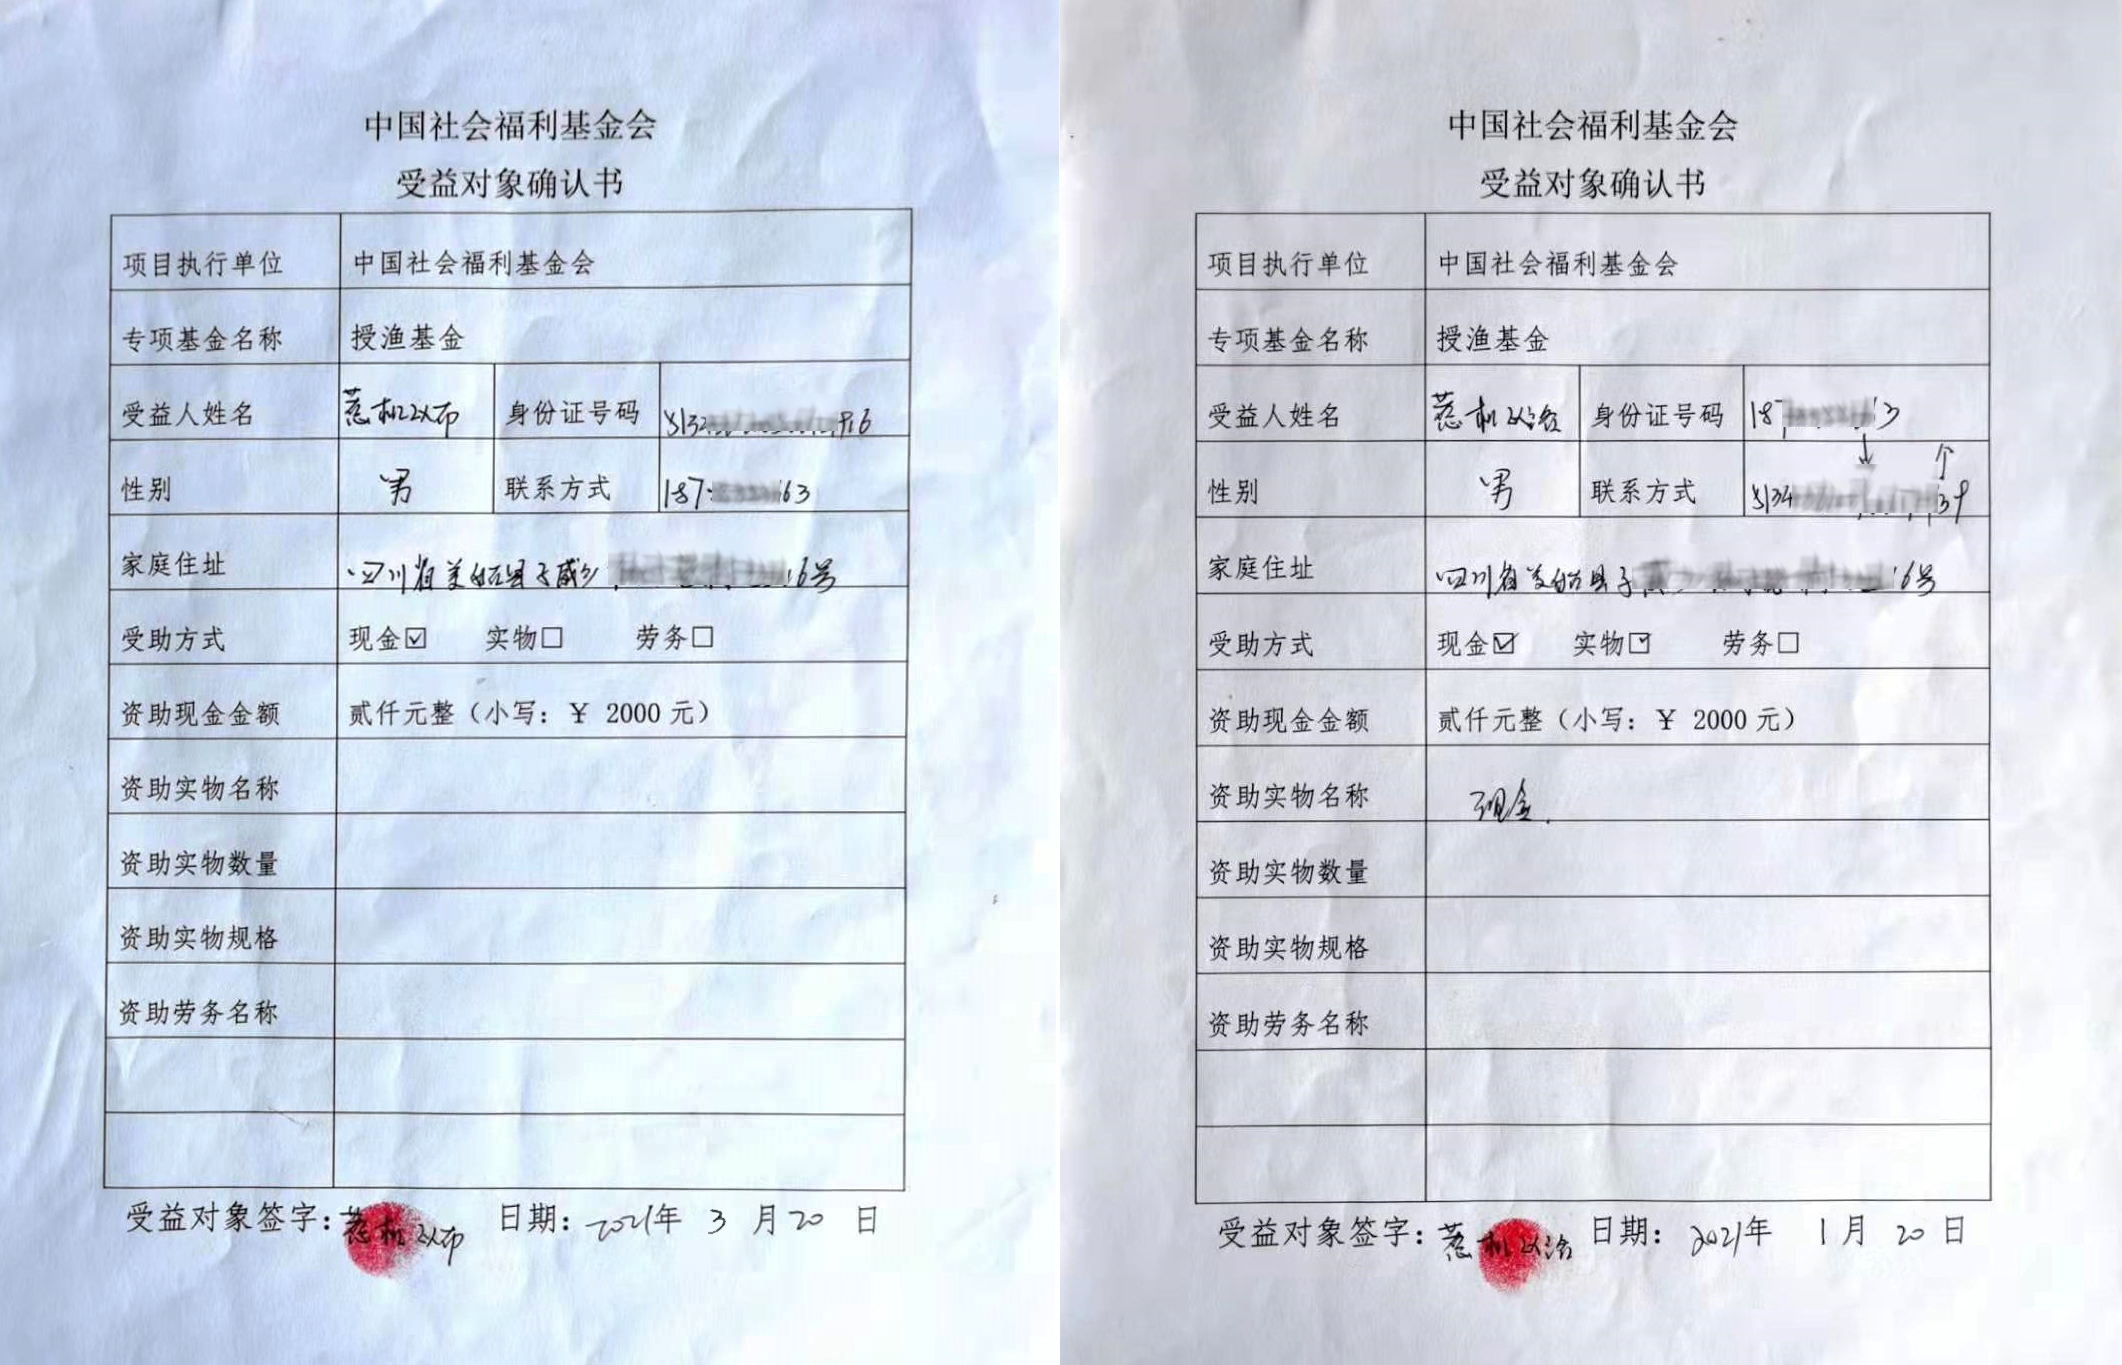 中国社会福利基金会
受益对象确认书
项目执行单位 中国社会福利基金会
专项基金名称 授渔基金
受益人姓名 惹机以布 身份证号码 5132
性别 男 联系方式 187 63
家庭住址 四川省美姑县子威乡 6号
受助方式 现金☑ 实物□ 劳务□
资助现金金额 贰仟元整（小写：￥ 2000 元）
资助实物名称
资助实物数量
资助实物规格
资助劳务名称
受益对象签字：惹机以布 日期：2021年 3 月 20 日
中国社会福利基金会
受益对象确认书
项目执行单位 中国社会福利基金会
专项基金名称 授渔基金
受益人姓名 惹机以洛 身份证号码 187 3
性别 男 联系方式 5134 39
家庭住址 四川省美姑县子 6号
受助方式 现金☑ 实物☑ 劳务□
资助现金金额 贰仟元整（小写：￥ 2000 元）
资助实物名称 现金.
资助实物数量
资助实物规格
资助劳务名称
受益对象签字：惹机以洛 日期：2021年 1 月 20 日